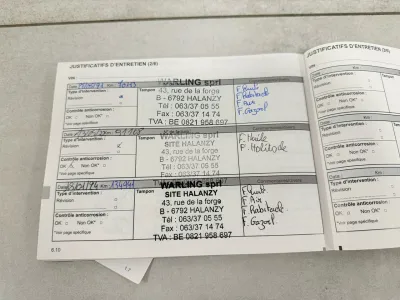 JUSTIFICATIFS D'ENTRETIEN (2/6)
VIN :
Date : Km :
Type d'intervention : Tampon
Révision
Contrôle anticorrosion :
OK □ Non OK* □
*Voir page spécifique
WARLING sprl
43, rue de la forge
B - 6792 HALANZY
Tél : 063/37 05 55
Fax : 063/37 14 74
TVA : BE 0821 958 697
F. Huile
F. Habitacle
F. Air
F. Gazoil
Date : Km :
Type d'intervention : Tampon
Révision
Contrôle anticorrosion :
OK Non OK* □
*Voir page spécifique
WARLING sprl
SITE HALANZY
43, rue de la forge
B - 6792 HALANZY
Tél : 063/37 05 55
Fax : 063/37 14 74
TVA : BE 0821 958 697
F. Huile
F. Habitacle
Date : Km :
Type d'intervention : Tampon
Révision
Contrôle anticorrosion :
OK □ Non OK* □
*Voir page spécifique
WARLING sprl
SITE HALANZY
43, rue de la forge
B - 6792 HALANZY
Tél : 063/37 05 55
Fax : 063/37 14 74
TVA : BE 0821 958 697
F. Huile
F. Air
F. Habitacle
F. Gazoil
6.10
JUSTIFICATIFS D'ENTRETIEN
VIN :
Date : Km :
Type d'intervention :
Révision
Contrôle anticorrosion :
OK □ Non OK* □
*Voir page spécifique
Date : Km :
Type d'intervention :
Révision
Contrôle anticorrosion :
OK □ Non OK* □
*Voir page spécifique
Date : Km :
Type d'intervention :
Révision
Contrôle anticorrosion :
OK □ Non OK* □
*Voir page spécifique